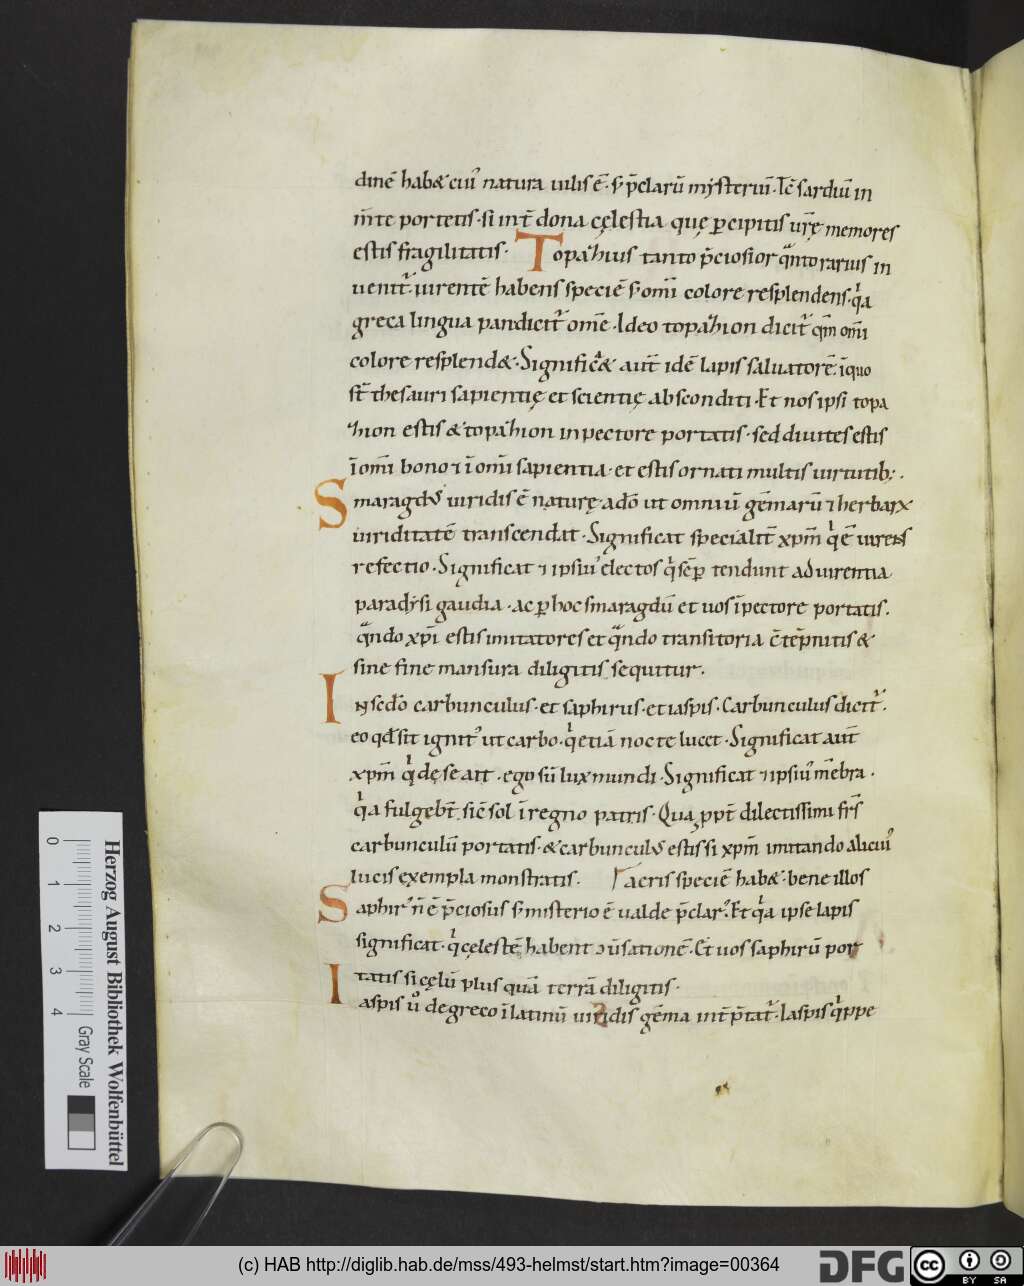 dinē hab& cui᷒ natura uilis ē · s; p̄clarū mẏsteriū · Iđ sarduī in
m̄te portetis · si int̄ dona cęlestia quę ꝑcipitis ur̄ę memores
estis fragilitatis · Topazhius tanto p̄ciosior qͣnto rarius in
uenit᷑ · uirentē habens speciē s; omī colore resplendens · qͥa
greca lingua pan dicit᷑ om̄e · Ideo topazhion dicit᷑ qm̄ omī
colore resplend& · Significͣ& aut̄ idē lapis saluatorē · ī quo
st̄ thesauri sapientię et scientię absconditi · Et nos ipsi topa
zhion estis & topazhion in pectore portatis · sed diuites estis
ī omī bono ⁊ ī omī sapientia · et estis ornati multis uirtutib; ·
Smaragdꝰ uiridis ē naturę · adō ut omniū gēmarū ⁊ herbaꝝ
uiriditatē transcendat · Significat specialit̄ xp̄m qͥ ē uirens
refectio · Significat ⁊ ipsiꝰ electos qͥ sēꝑ tendunt ad uirentia
paradẏsi gaudia · ac ꝑ hoc smaragdū et uos ī pectore portatis ·
qͣndo xp̄i estis imitatores et qͣndo transitoria c̄tēpnitis &
sine fine mansura diligitis sequitur ·
In sedō carbunculus · et saphirus · et iaspis · Carbunculus dicit᷑ ·
eo qđ sit ignitꝰ ut carbo · qͥ etiā nocte lucet · Significat aut̄
xp̄m qͥ de se ait · ego sū lux mundi · Significat ⁊ ipsiꝰ mēbra ·
qͥa fulgebt̄ sic̄ sol ī regno patris · Qua ꝓpt̄ dilectissimi fr̄s
carbunculū portatis · & carbunculꝰ estis si xp̄m imitando alicuiꝰ
lucis exempla monstratis · aeris speciē hab& · bene illos
Saphirꝰ n̄ ē p̄ciosus s; misterio ē ualde p̄clarꝰ · Et qͥa ipse lapis
significat · qͥ cęlestē habent ↄū̄sationē · Et uos saphirū por
tatis si cęlū plus quā terrā diligitis ·
Iaspis ū de greco ī latinū uiridis gēma int̄p̄tat᷑ · Iaspis qͥppe
0 1 2 3 4 Gray Scale
Herzog August Bibliothek Wolfenbüttel
(c) HAB http://diglib.hab.de/mss/493-helmst/start.htm?image=00364
DFG
cc BY SA